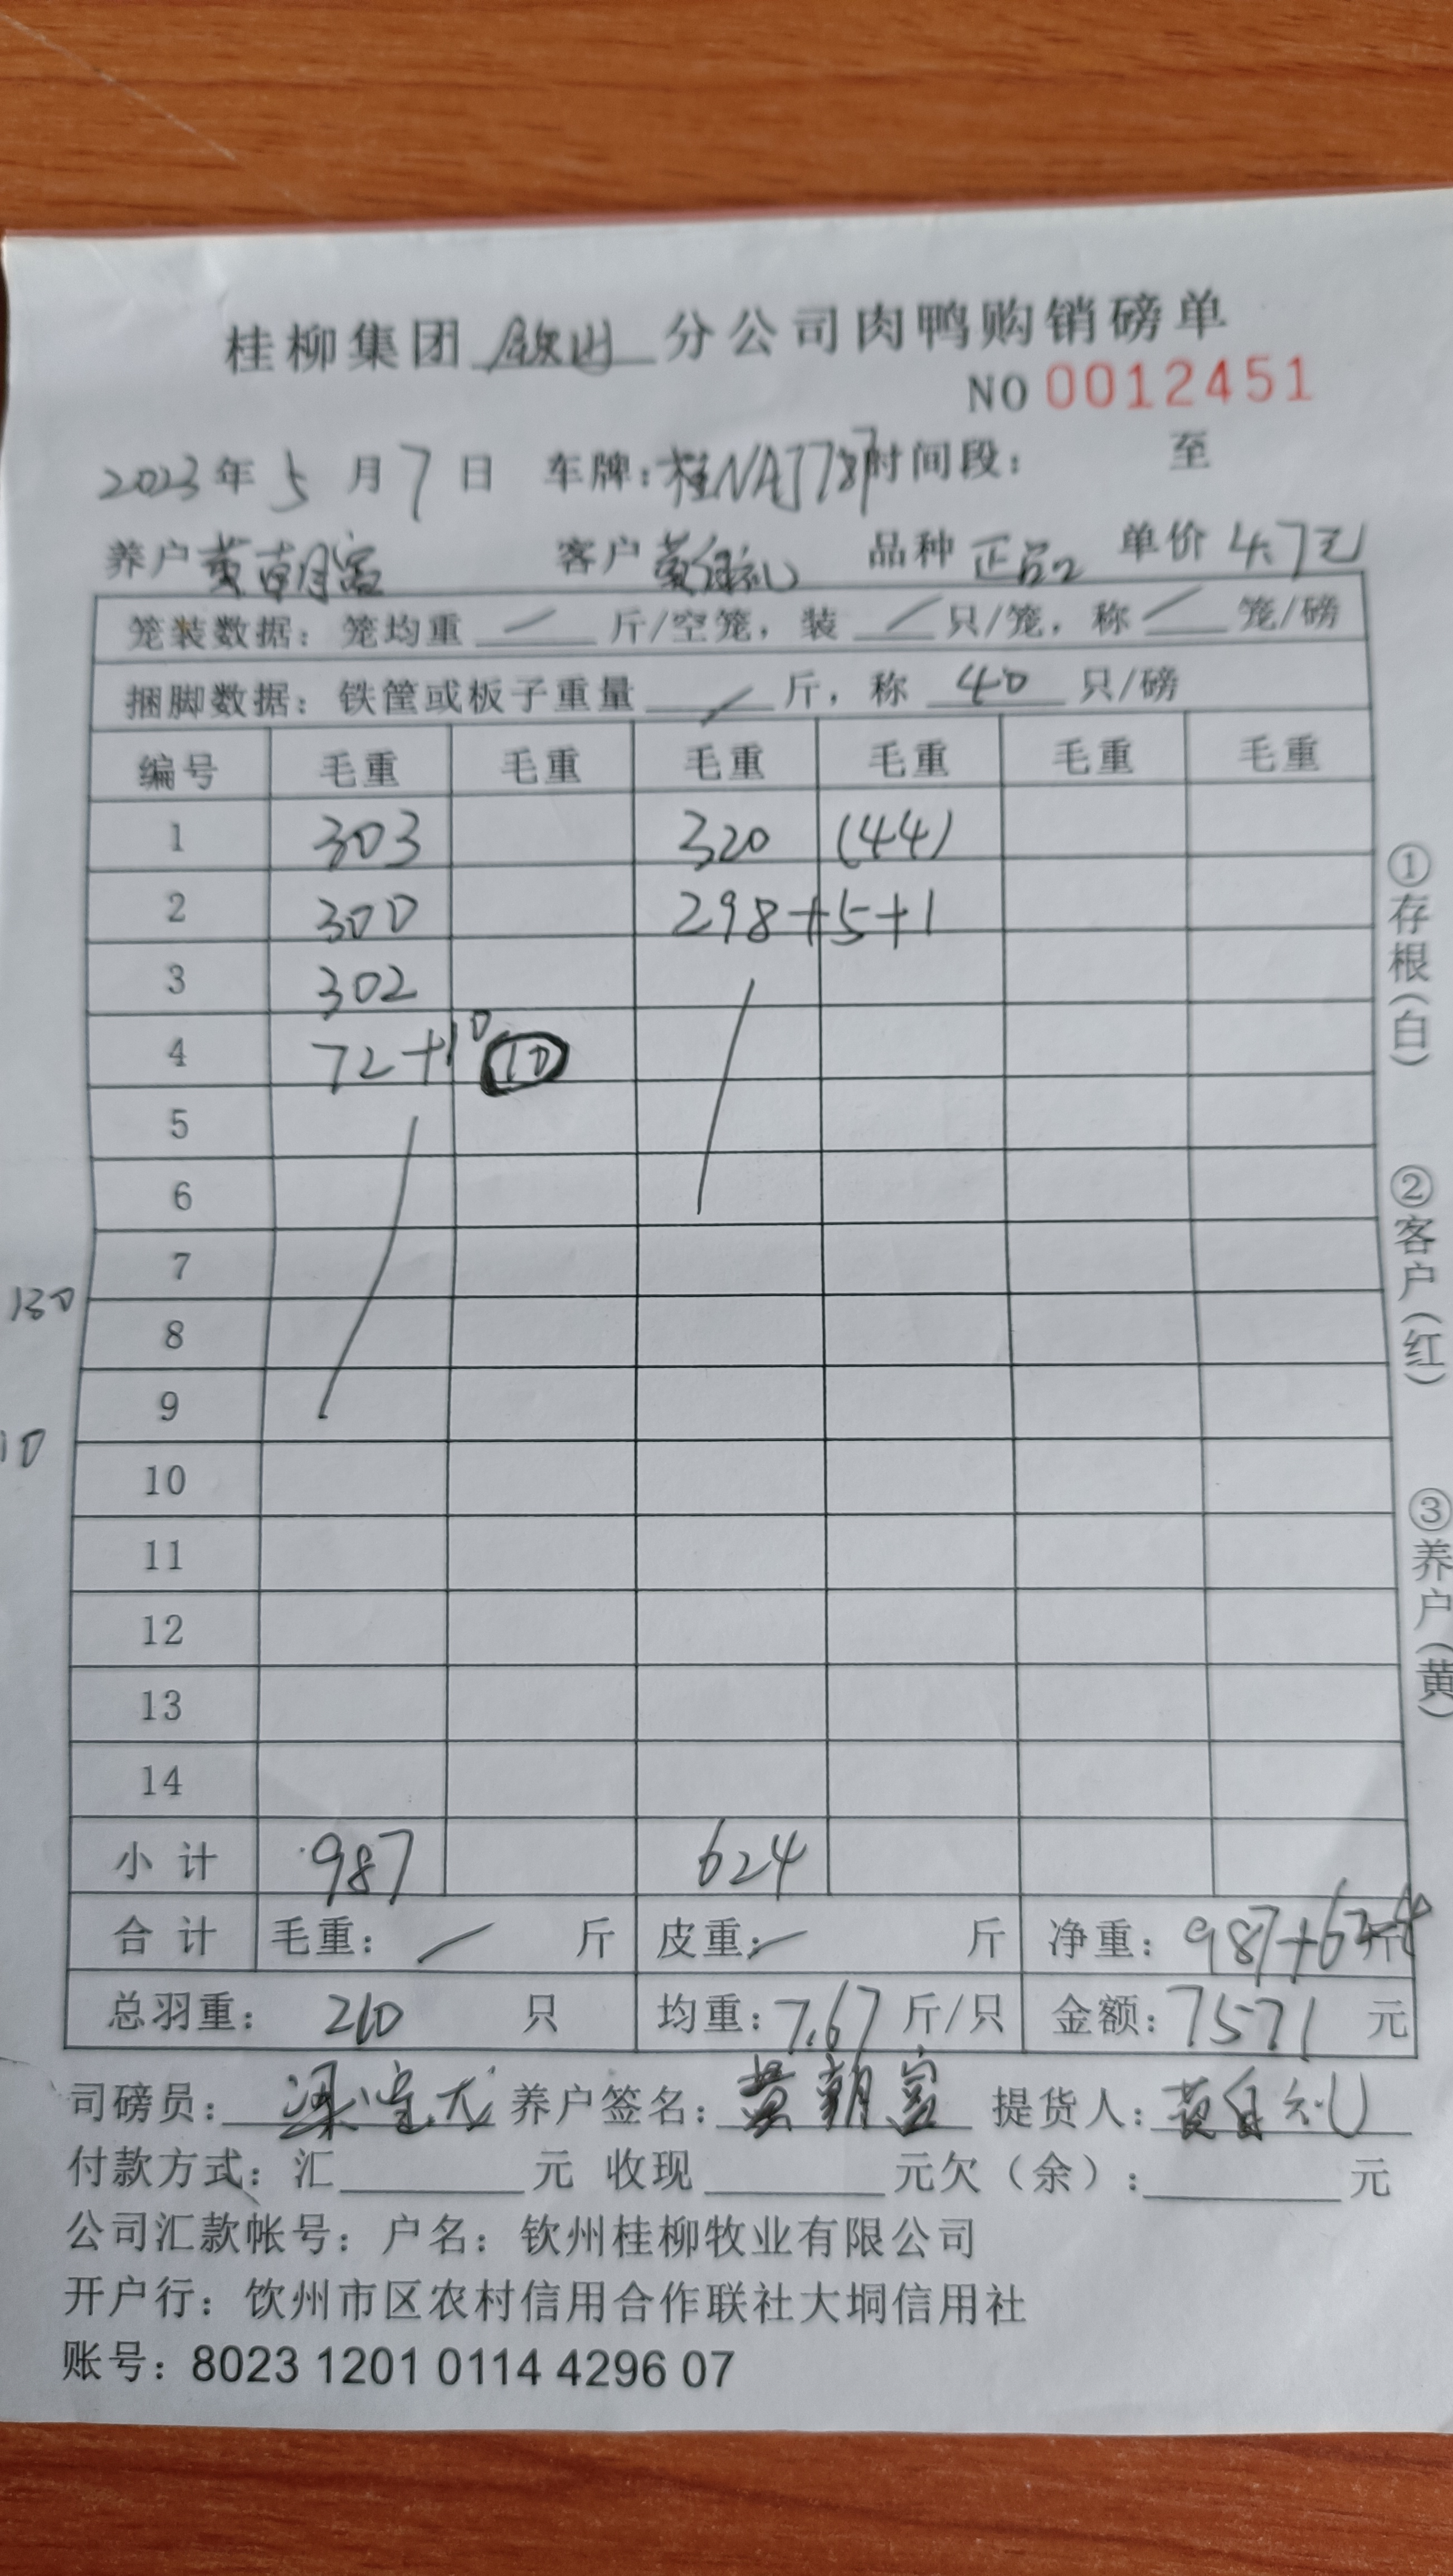 桂柳集团 钦州 分公司肉鸭购销磅单
NO 0012451
2023年 5 月 7 日 车牌：桂NAJ787 时间段： 至
养户 黄朝富 客户 黄自礼 品种 正品 单价 4.7元
笼装数据：笼均重 / 斤/空笼，装 / 只/笼，称 / 笼/磅
捆脚数据：铁筐或板子重量 / 斤，称 40 只/磅
编号 毛重 毛重 毛重 毛重 毛重 毛重
1 303 320 (44)
2 300 298+5+1
3 302
4 72+10 10
5
6
7
130
8
9
10
10
11
12
13
14
小计 987 624
合计 毛重： / 斤 皮重： / 斤 净重：987+624 斤
总羽重： 210 只 均重：7.67 斤/只 金额：7571 元
司磅员： 养户签名：黄朝富 提货人：黄自礼
付款方式：汇 元 收现 元欠（余）： 元
公司汇款帐号：户名：钦州桂柳牧业有限公司
开户行：饮州市区农村信用合作联社大垌信用社
账号：8023 1201 0114 4296 07
①存根（白）
②客户（红）
③养户（黄）